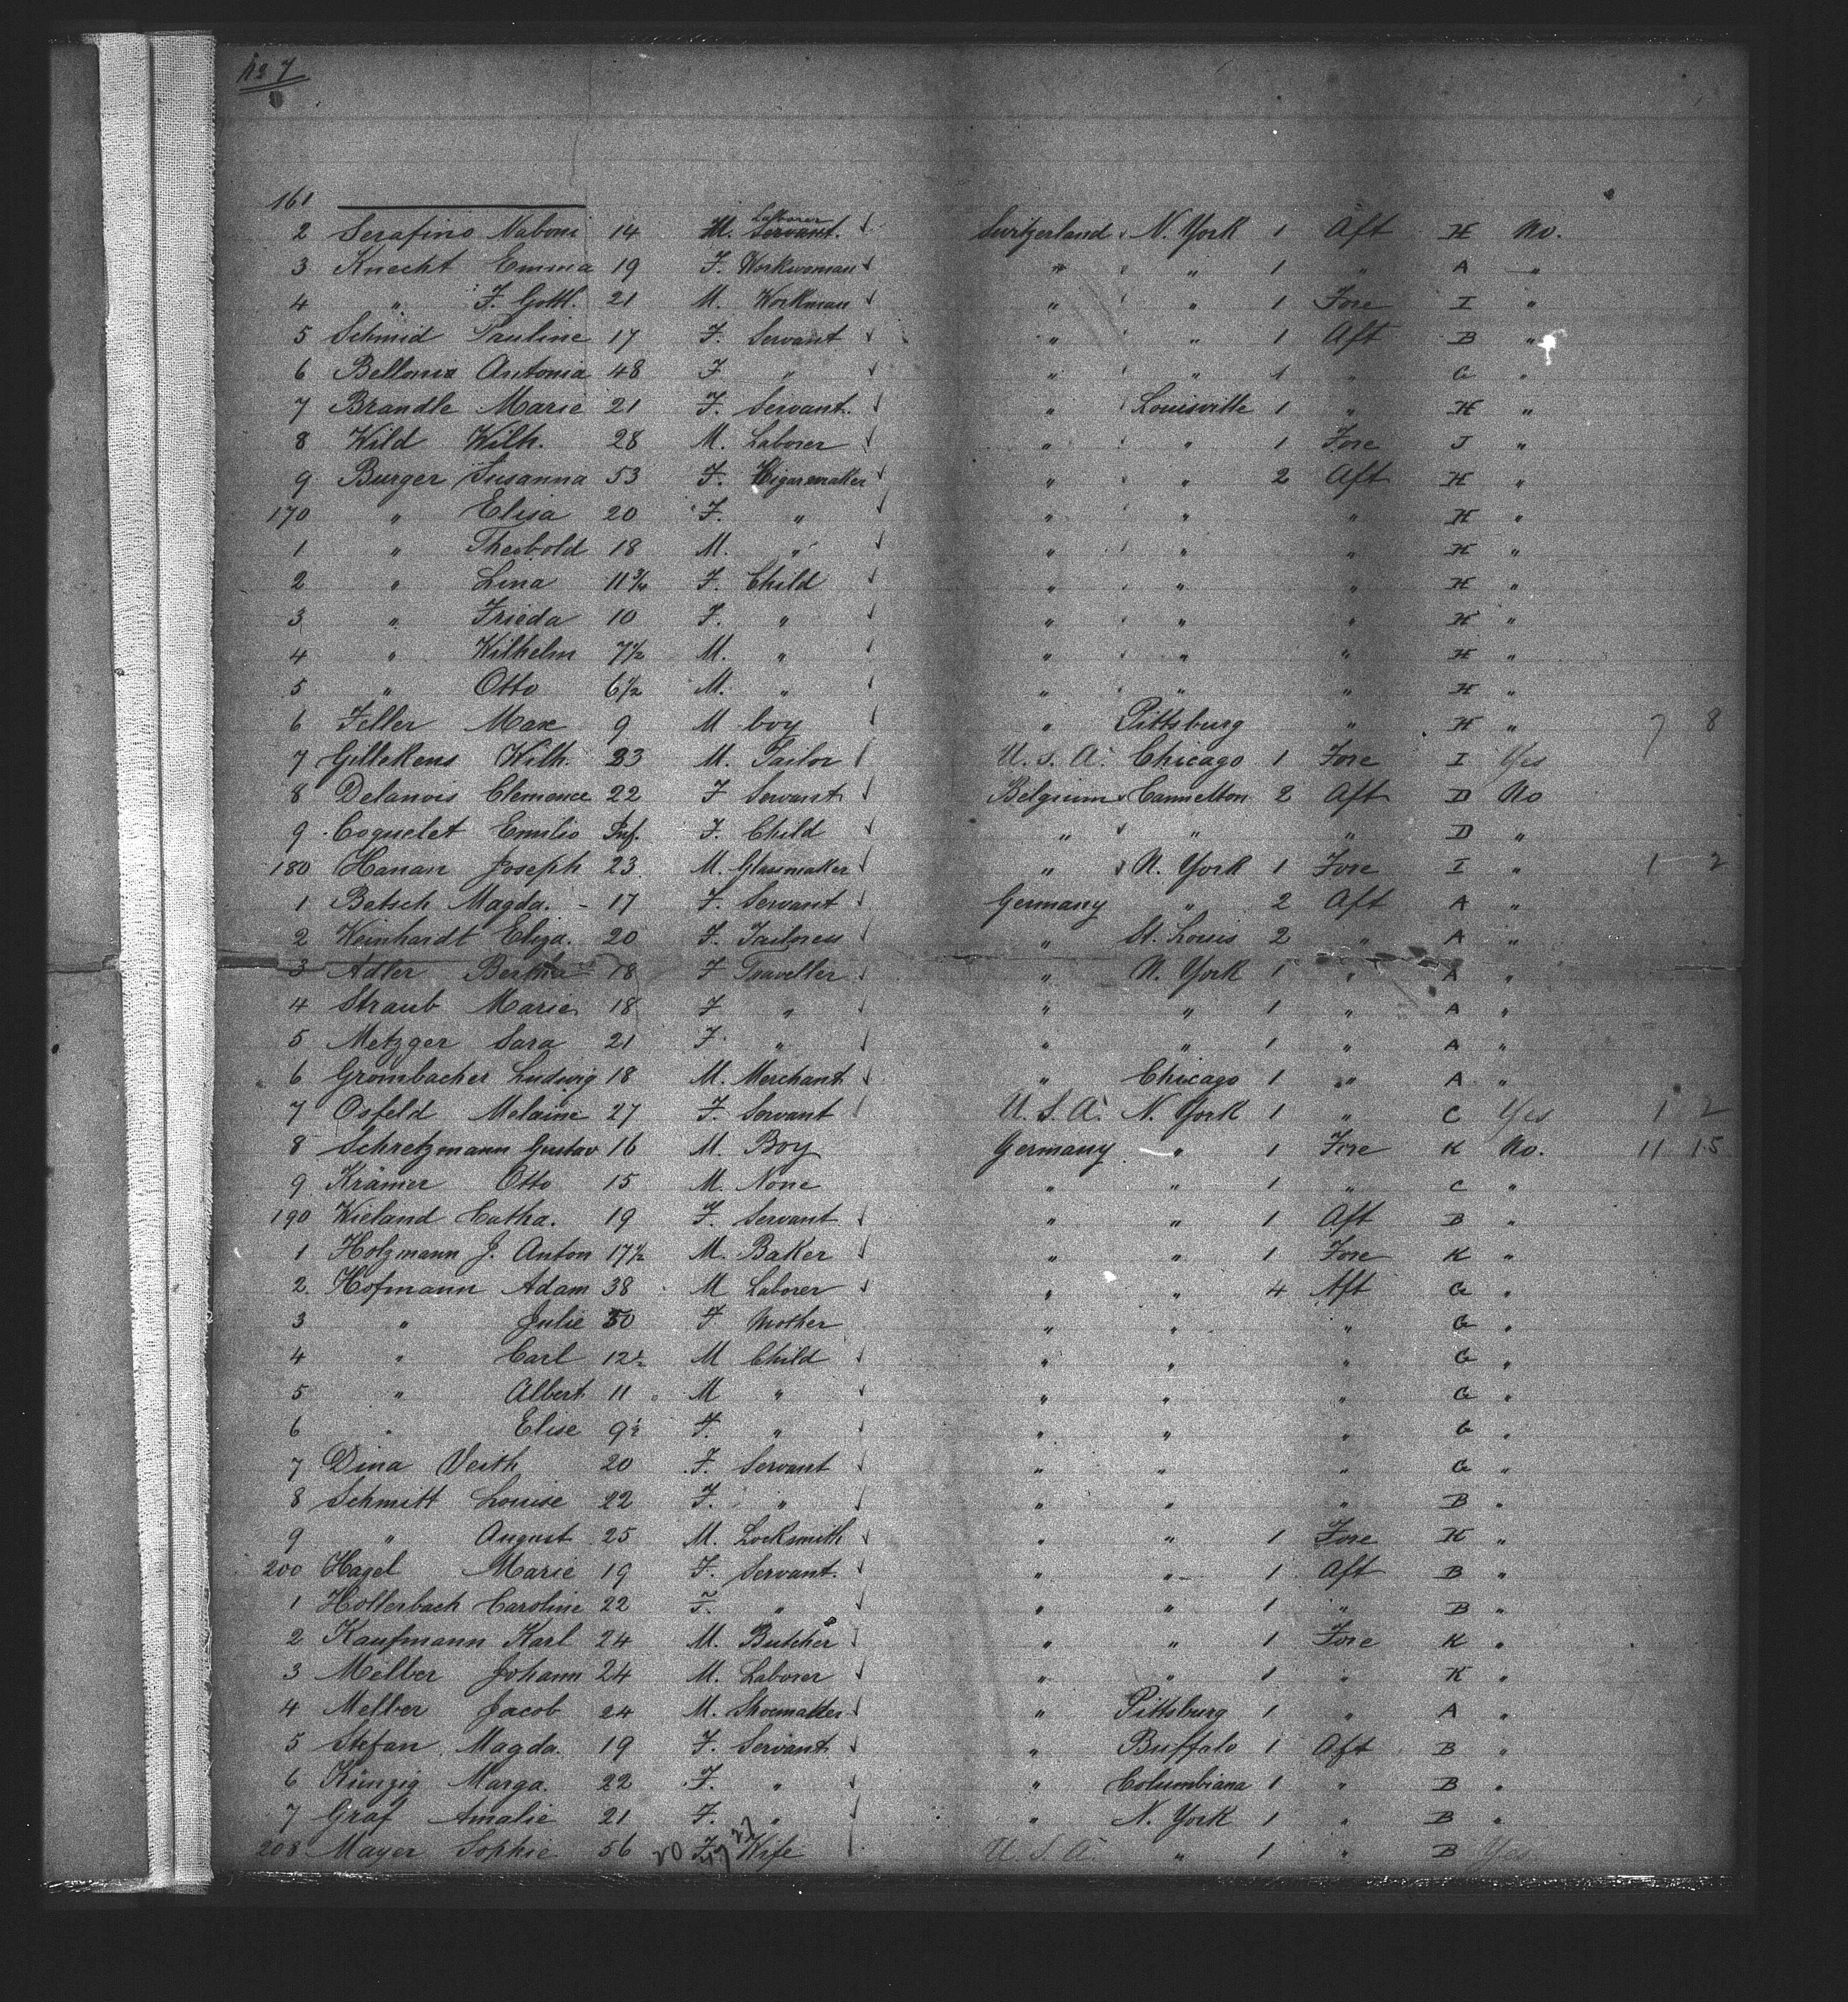 No 7
161
2 Serafino Naboni 14 M. Laborer Servant. Switzerland N. York 1 Aft H No.
3 Knecht Emma 19 F. Workwoman " " 1 " A "
4 " F. Gottl. 21 M. Workman " " 1 Fore I "
5 Schmid Pauline 17 F. Servant " " 1 Aft B "
6 Bellonia Antonia 48 F " " " 1 " G "
7 Brandle Marie 21 F. Servant. " Louisville 1 " H "
8 Wild Wilh. 28 M. Laborer " " 1 Fore J "
9 Burger Susanna 53 F. Cigarmaker " " 2 Aft H "
170 " Elisa 20 F. " " " " H "
1 " Theobold 18 M. " " " " H "
2 " Lina 11 3/4 F. Child " " " H "
3 " Frieda 10 F. " " " " H "
4 " Wilhelm 7 1/2 M. " " " " H "
5 " Otto 6 1/2 M. " " " " H "
6 Feller Max 9 M boy " Pittsburg " H " 7 8
7 Gillekens Wilh. 33 M. Tailor U. S. A. Chicago 1 Fore I Yes
8 Delanois Clemence 22 F Servant Belgium Cannelton 2 Aft D No
9 Coquelet Emilio Inf. F. Child " " " D "
180 Hanan Joseph 23 M. Glassmaker " N. York 1 Fore I " 1 2
1 Betsch Magda. - 17 F. Servant Germany " 2 Aft A "
2 Weinhardt Eliza. 20 F. Tailoress " St. Louis 2 " A "
3 Adler Bertha 18 F Traveller " N. York 1 " A "
4 Straub Marie 18 F " " " 1 " A "
5 Metzger Sara 21 F. " " " 1 " A "
6 Grombacher Ludwig 18 M. Merchant " Chicago 1 " A "
7 Osfeld Melaine 27 F. Servant U. S. A. N. York 1 " C Yes 1 2
8 Schretzmann Gustav 16 M. Boy Germany " 1 Fore K No. 11 15
9 Krämer Otto 15 M. None " " 1 " C "
190 Wieland Catha. 19 F. Servant " " 1 Aft B "
1 Holzmann J. Anton 17 1/2 M. Baker " " 1 Fore K "
2. Hofmann Adam 38 M Laborer " " 4 Aft G "
3 " Julie 50 F Mother " " " G "
4 " Carl 12 1/2 M Child " " " G "
5 " Albert 11 M " " " " G "
6 " Elise 9 1/2 F. " " " " G "
7 Dina Veith 20 F. Servant " " " G "
8 Schmitt Louise 22 F. " " " " B "
9 " August 25 M. Locksmith " " 1 Fore K "
200 Hagel Marie 19 F. Servant. " " 1 Aft B "
1 Hollerbach Caroline 22 F. " " " 1 " B "
2 Kaufmann Karl 24 M. Butcher " " 1 Fore K "
3 Melber Johann 24 M. Laborer " " 1 " K "
4 Melber Jacob 24 M. Shoemaker " Pittsburg 1 " A "
5 Stefan Magda. 19 F. Servant " Buffalo 1 Aft B "
6 Künzig Marga. 22 F. " " Columbiana 1 " B "
7 Graf Amalie 21 F. " " N. York 1 " B "
208 Mayer Sophie 56 20 F. 47 27 Wife U. S. A. " 1 " B Yes